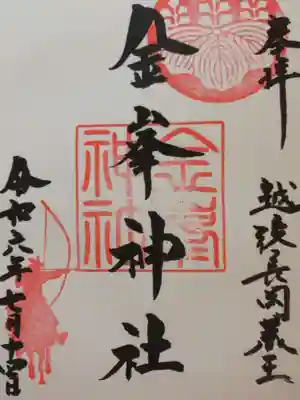 奉拝
越後長岡蔵王
金峯神社
金峯
神社
令和六年七月十四日